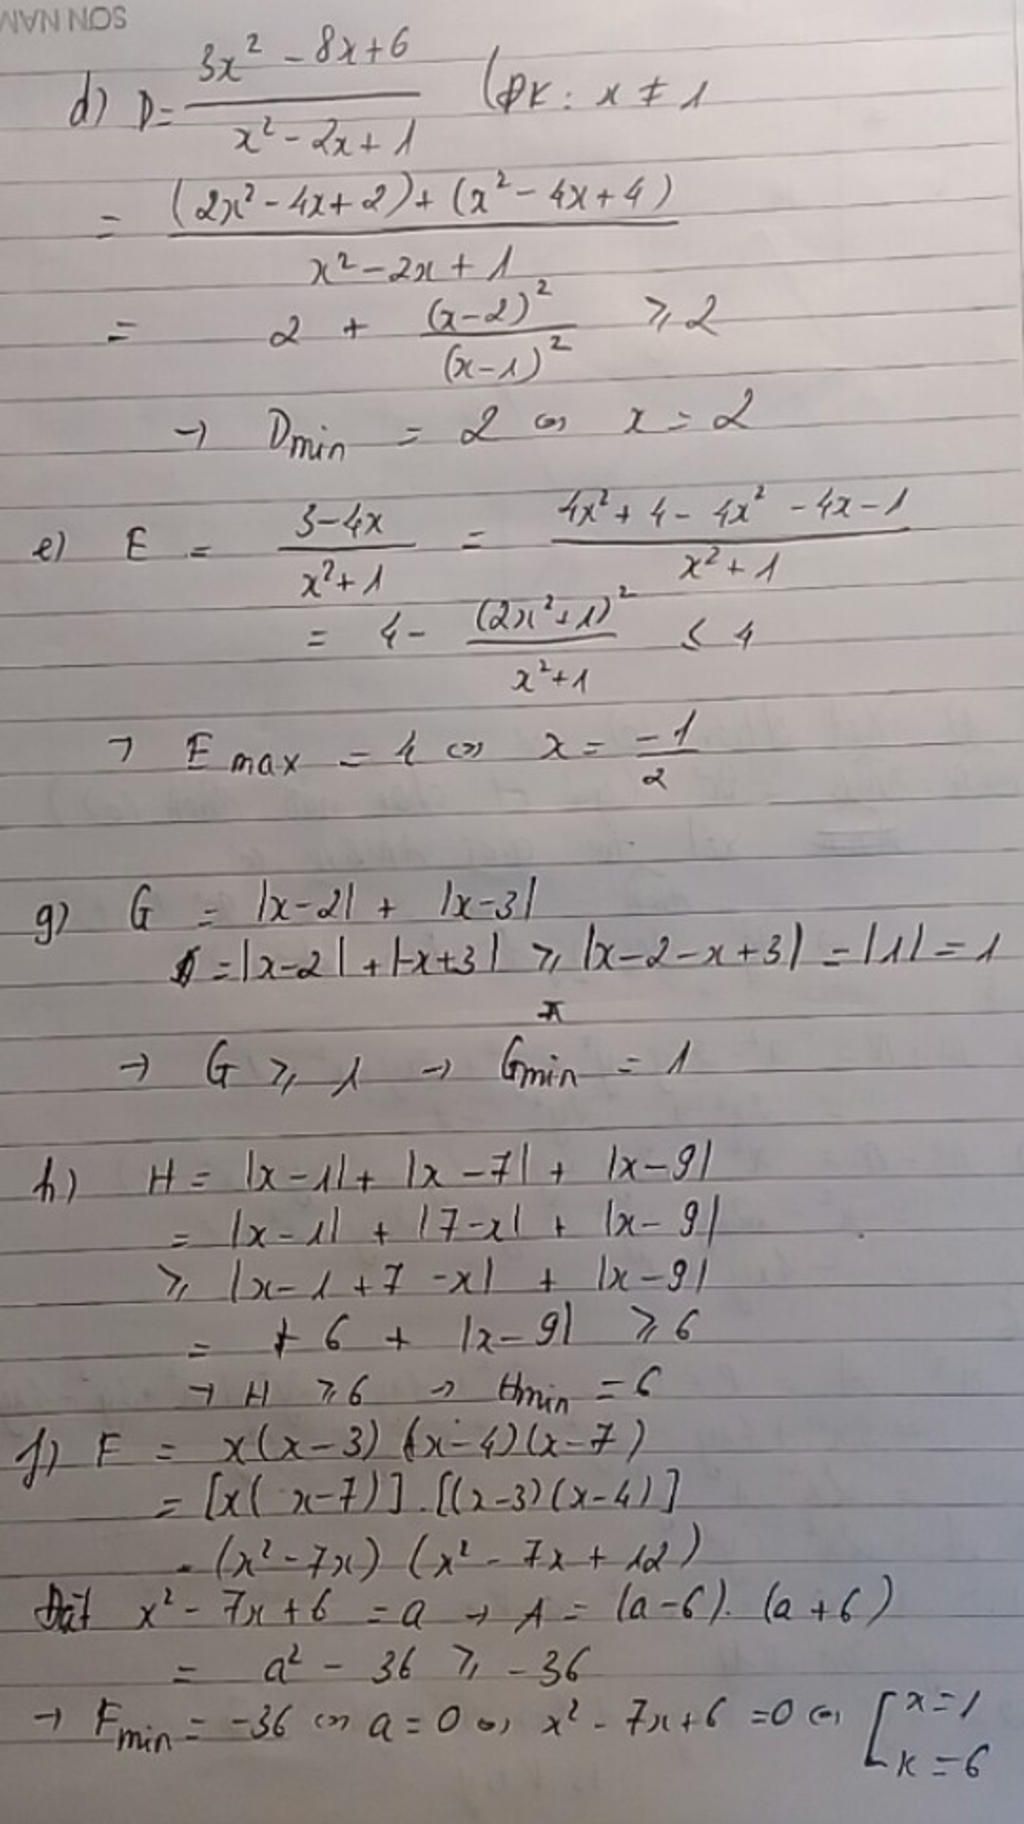 SƠN NAM
d) D = \frac{3x^2 - 8x + 6}{x^2 - 2x + 1} (ĐK: x ≠ 1
= \frac{(2x^2 - 4x + 2) + (x^2 - 4x + 4)}{x^2 - 2x + 1}
= 2 + \frac{(x-2)^2}{(x-1)^2} ⩾ 2
→ Dmin = 2 ⇔ x = 2
e) E = \frac{3-4x}{x^2+1} = \frac{4x^2 + 4 - 4x^2 - 4x - 1}{x^2+1}
= 4 - \frac{(2x^2+1)^2}{x^2+1} ≤ 4
→ E max = 4 ⇔ x = \frac{-1}{2}
g) G = |x-2| + |x-3|
= |x-2| + |-x+3| ⩾ |x-2-x+3| = |1| = 1
→ G ⩾ 1 → Gmin = 1
h) H = |x-1| + |x-7| + |x-9|
= |x-1| + |7-x| + |x-9|
⩾ |x-1+7-x| + |x-9|
= + 6 + |x-9| ⩾ 6
→ H ⩾ 6 → Hmin = 6
f) F = x(x-3)(x-4)(x-7)
= [x(x-7)].[(x-3)(x-4)]
= (x^2-7x)(x^2-7x+12)
Đặt x^2-7x+6 = a → A = (a-6).(a+6)
= a^2 - 36 ⩾ -36
→ Fmin = -36 ⇔ a = 0 ⇔ x^2-7x+6 = 0 ⇔ [ x=1
x=6